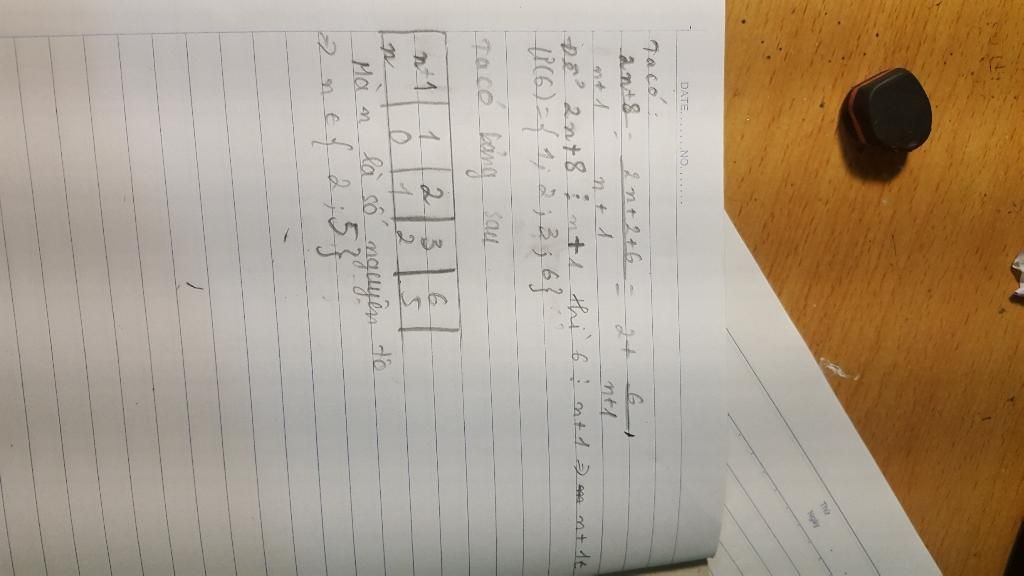 DATE........NO.......
Ta có
2n+8 = 2n+2+6 = 2+ 6
n+1 n+1 n+1
Để 2n+8 ⋮ n+1 thì 6 ⋮ n+1 ⇒ n+1 ∈
Ư(6)={1;2;3;6}
Ta có bảng sau
n+1 | 1 | 2 | 3 | 6
n | 0 | 1 | 2 | 5
Mà n là số nguyên tố
⇒ n ∈ { 2; 5}